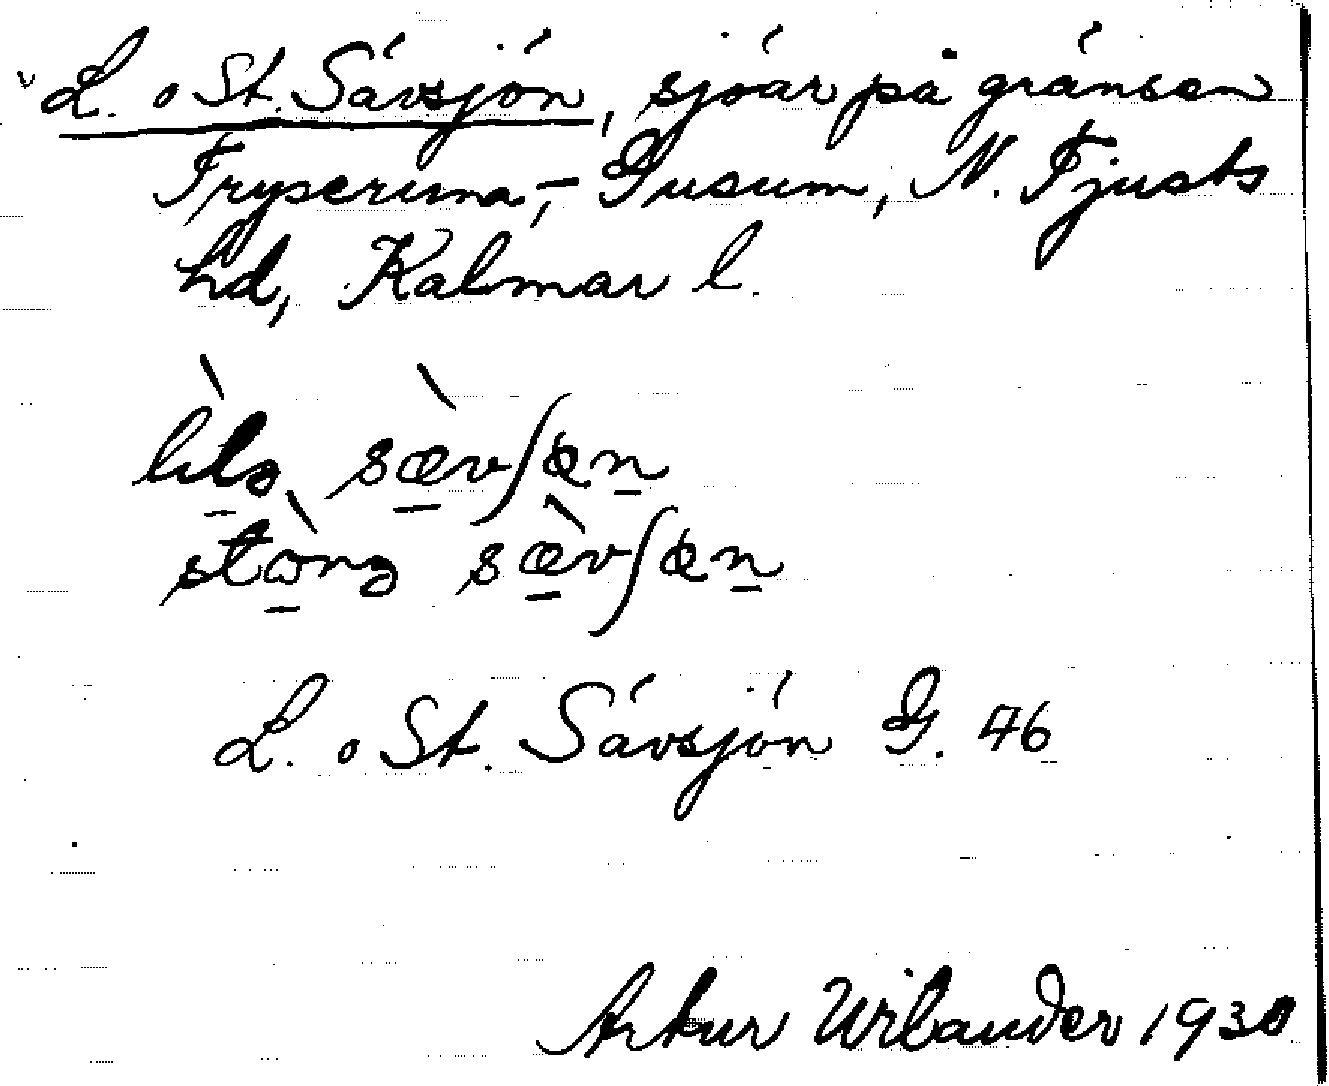 L. o St. Sävsjön, sjöar på gränsen
Tryserums, - Gusum, N. Tjusts
hd, Kalmar l.
lila sævʃøn
stòra sævʃøn
L. o St. Sävsjön G. 46
Artur Wilander 1930